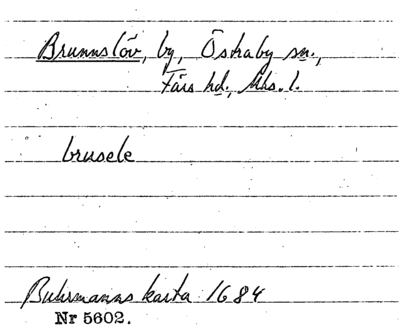 Brunnslöv, by, Östraby sn.,
Färs hd., Mhs. l.
brusele
Buhrmanns karta 1684
Nr 5602.